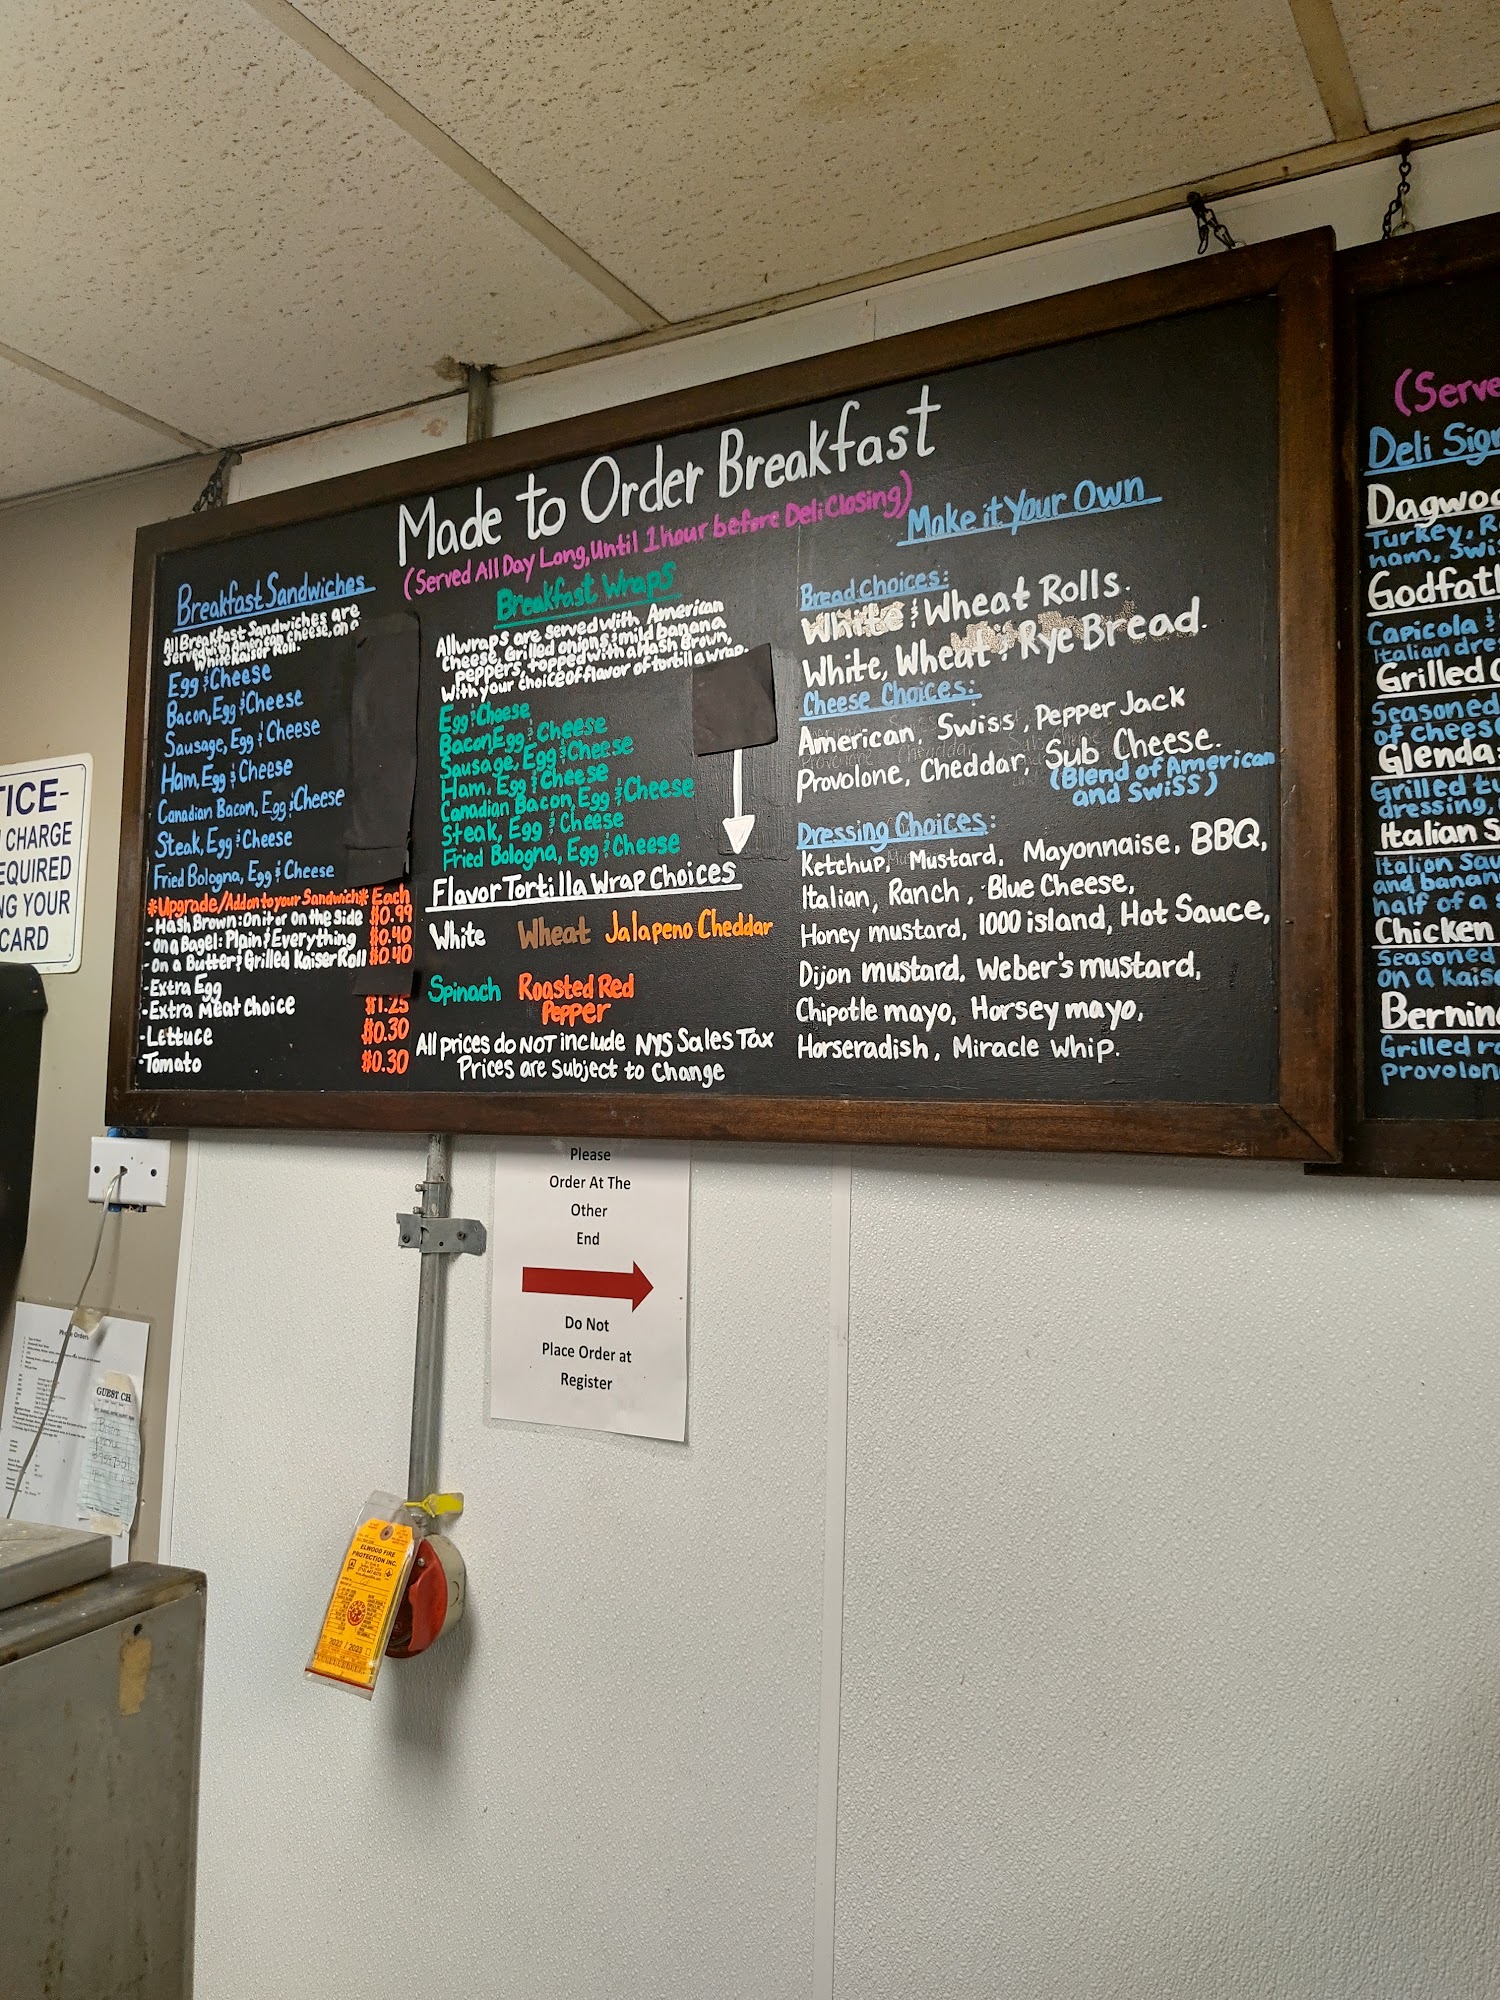 Made to Order Breakfast
(Served All Day Long, Until 1 hour before Deli Closing)
Breakfast Sandwiches
All Breakfast Sandwiches are
served with American cheese, on a
White Kaiser Roll.
Egg & Cheese
Bacon, Egg & Cheese
Sausage, Egg & Cheese
Ham, Egg & Cheese
Canadian Bacon, Egg & Cheese
Steak, Egg & Cheese
Fried Bologna, Egg & Cheese
*Upgrade/Add on to your Sandwich* Each
-Hash Brown: On it or On the Side $0.99
-On a Bagel: Plain & Everything $0.40
-On a Butter & Grilled Kaiser Roll $0.40
-Extra Egg
-Extra Meat Choice $1.25
-Lettuce $0.30
-Tomato $0.30
Breakfast Wraps
All wraps are served with American
Cheese, Grilled onions & mild banana
peppers, topped with a Hash Brown,
With your choice of flavor of tortilla wrap.
Egg & Cheese
Bacon Egg & Cheese
Sausage, Egg & Cheese
Ham, Egg & Cheese
Canadian Bacon, Egg & Cheese
Steak, Egg & Cheese
Fried Bologna, Egg & Cheese
Flavor Tortilla Wrap Choices
White Wheat Jalapeno Cheddar
Spinach Roasted Red
Pepper
All prices do NOT include NYS Sales Tax
Prices are Subject to Change
Make it Your Own
Bread Choices:
White & Wheat Rolls.
White, Wheat & Rye Bread.
Cheese Choices:
American, Swiss, Pepper Jack
Provolone, Cheddar, Sub Cheese.
(Blend of American
and Swiss)
Dressing Choices:
Ketchup, Mustard, Mayonnaise, BBQ,
Italian, Ranch, Blue Cheese,
Honey mustard, 1000 island, Hot Sauce,
Dijon mustard, Weber's mustard,
Chipotle mayo, Horsey mayo,
Horseradish, Miracle Whip.
(Serve
Deli Sig
Dagwoo
Turkey, R
ham, Swis
Godfath
Capicola &
Italian dre
Grilled C
Seasoned
of chees
Glenda
Grilled tu
dressing,
Italian S
Italian Sau
and banan
half of a s
Chicken
Seasoned
on a Kais
Bernin
Grilled ro
Provolon
TICE-
CHARGE
EQUIRED
NG YOUR
CARD
Please
Order At The
Other
End
Do Not
Place Order at
Register
Phone Orders
GUEST CH
ELWOOD FIRE
PROTECTION INC.
2022 / 2023